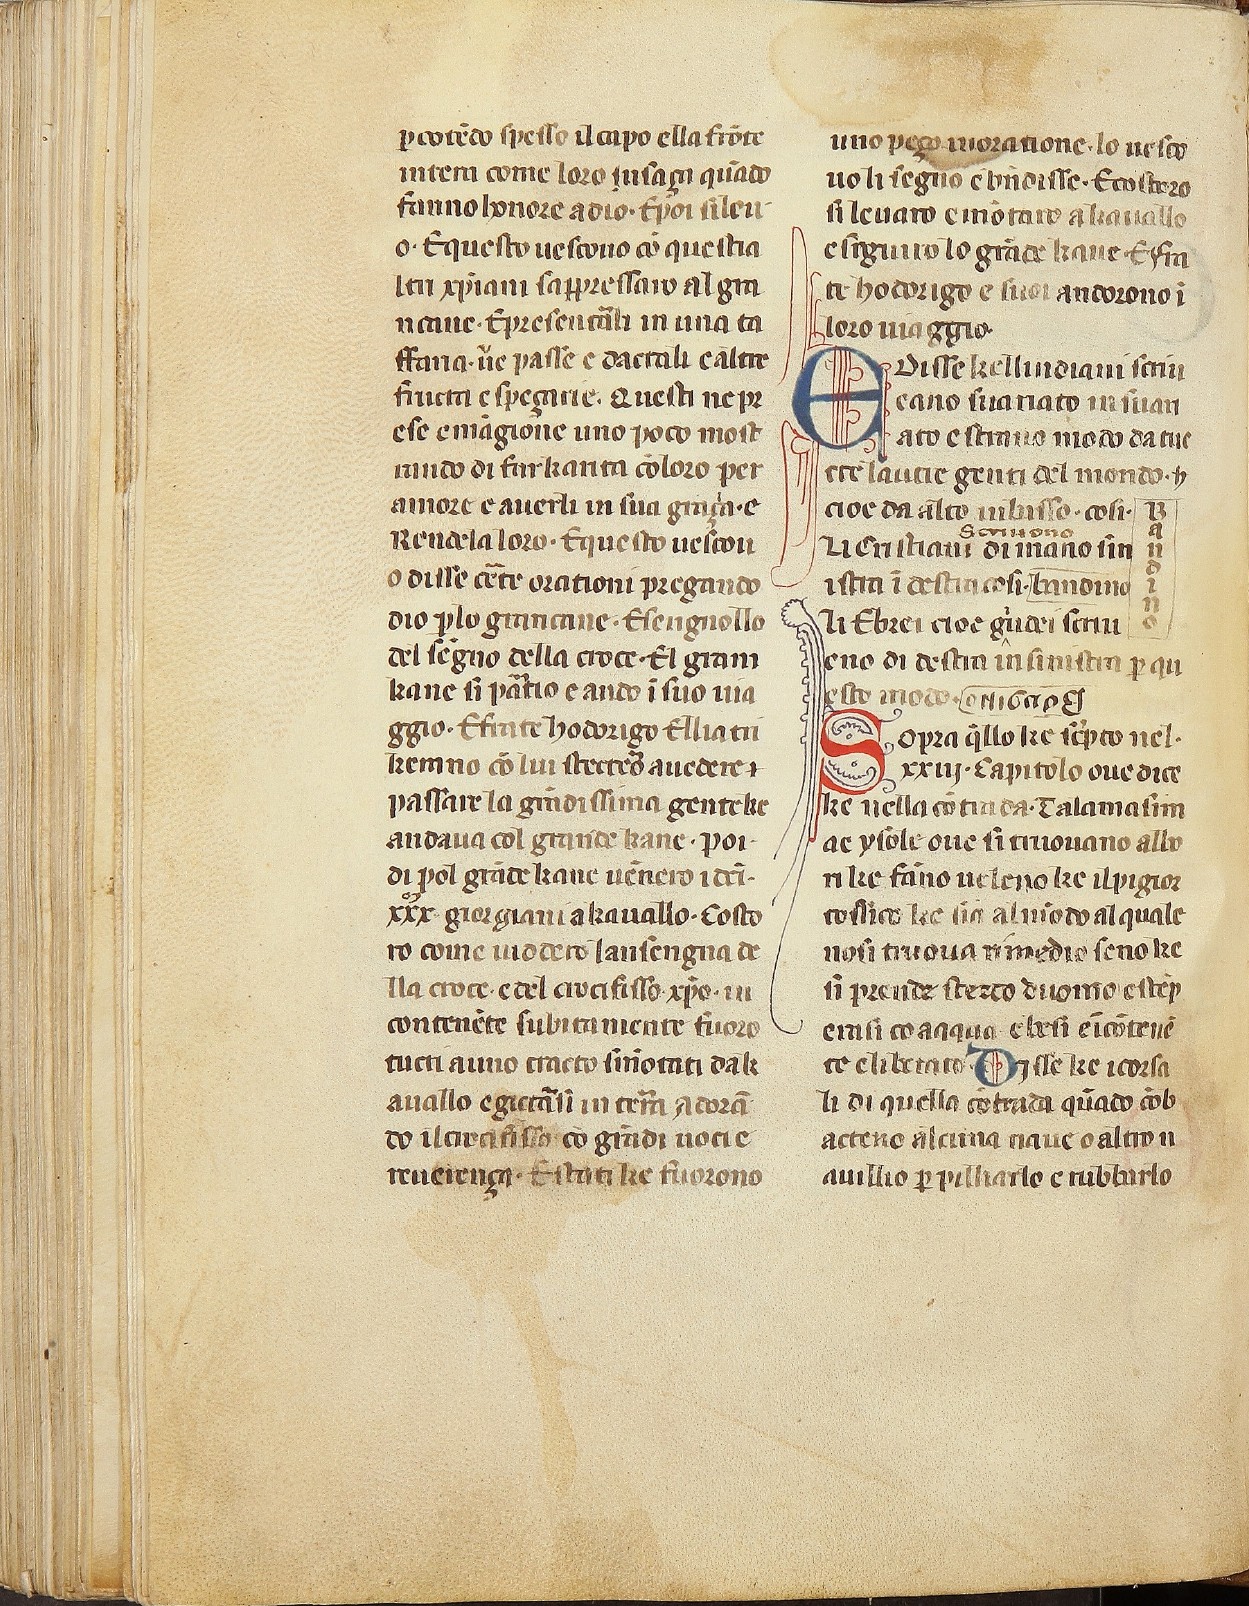 pcotēdo spesso il capo ella frōte
intera come loro jnsaça quādo
fanno honore a dio. Epoi si leu
o. Equesto uescouo cō questia
ltri xp̄iani sappressaro al gra
ncane. Epresentāli in una ta
ffaria. uue passe e dactali e altre
fructa e speçarie. Questi ne pr
ese emāgiōne uno poco most
rando di far karita cōloro per
amore e auerli in sua graçia. e
Rendela loro. Equesto uescou
o disse cēte orationi pregando
dio plo grancane. Esengnollo
del segno della croce. El gram
kane si pātio e ando ī suo uia
ggio. Efrate hodorigo Ellialtri
kemno cō lui stecterō auedere
passare la grādissima gente ke
andaua col grande kane. poi.
di pol grāde kane uēnero i dei.
xxx giorgiani akauallo. Costo
ro come uidero lansengna de
lla croce. e del crocifisso xpo. in
contenēte subitamente fuoro
tucti auno tracto smōtati dak
auallo e gictāsi in terra adorā
do il crocifisso cō grādi uoci e
reuerença. Estati ke fuorono
uno peço inoratione. lo uesco
uo li segno e bn̄disse. Ecostoro
si leuaro e mōtaro akauallo
e seguiro lo grāde kane. E fra
te hodorigo e suoi andorono ī
loro uiaggio.
E Disse kellindiani scriu
eano suariato insuari
ato e strano modo da tuc
cte laltre genti del mondo.
cioe da alto inbasso. cosi. Bandino
Scriuono
Li Cristiani di mano sin
istra ī destra cosi. bandino
li Ebrei cioe giudei scriu
eno di destra in sinistra p qu
esto modo. Bandino
Sopra q̄llo ke sc̄pto nel.
xxiij. Capitolo oue dice
ke nella cōtrada. Talamasim
ae ysole oue si truouano albo
ri ke fāno ueleno ke il pigior
tossico ke sia al mōdo al quale
nosi truoua rimedio seno ke
si prende sterco duomo e stēp
erasi co aqqua e besi eicōtenē
te e liberato. Disse ke icorsa
li di quella cōtrada quādo cōb
acteno alcuna naue o altro n
auillio p pilliarlo e rubbarlo